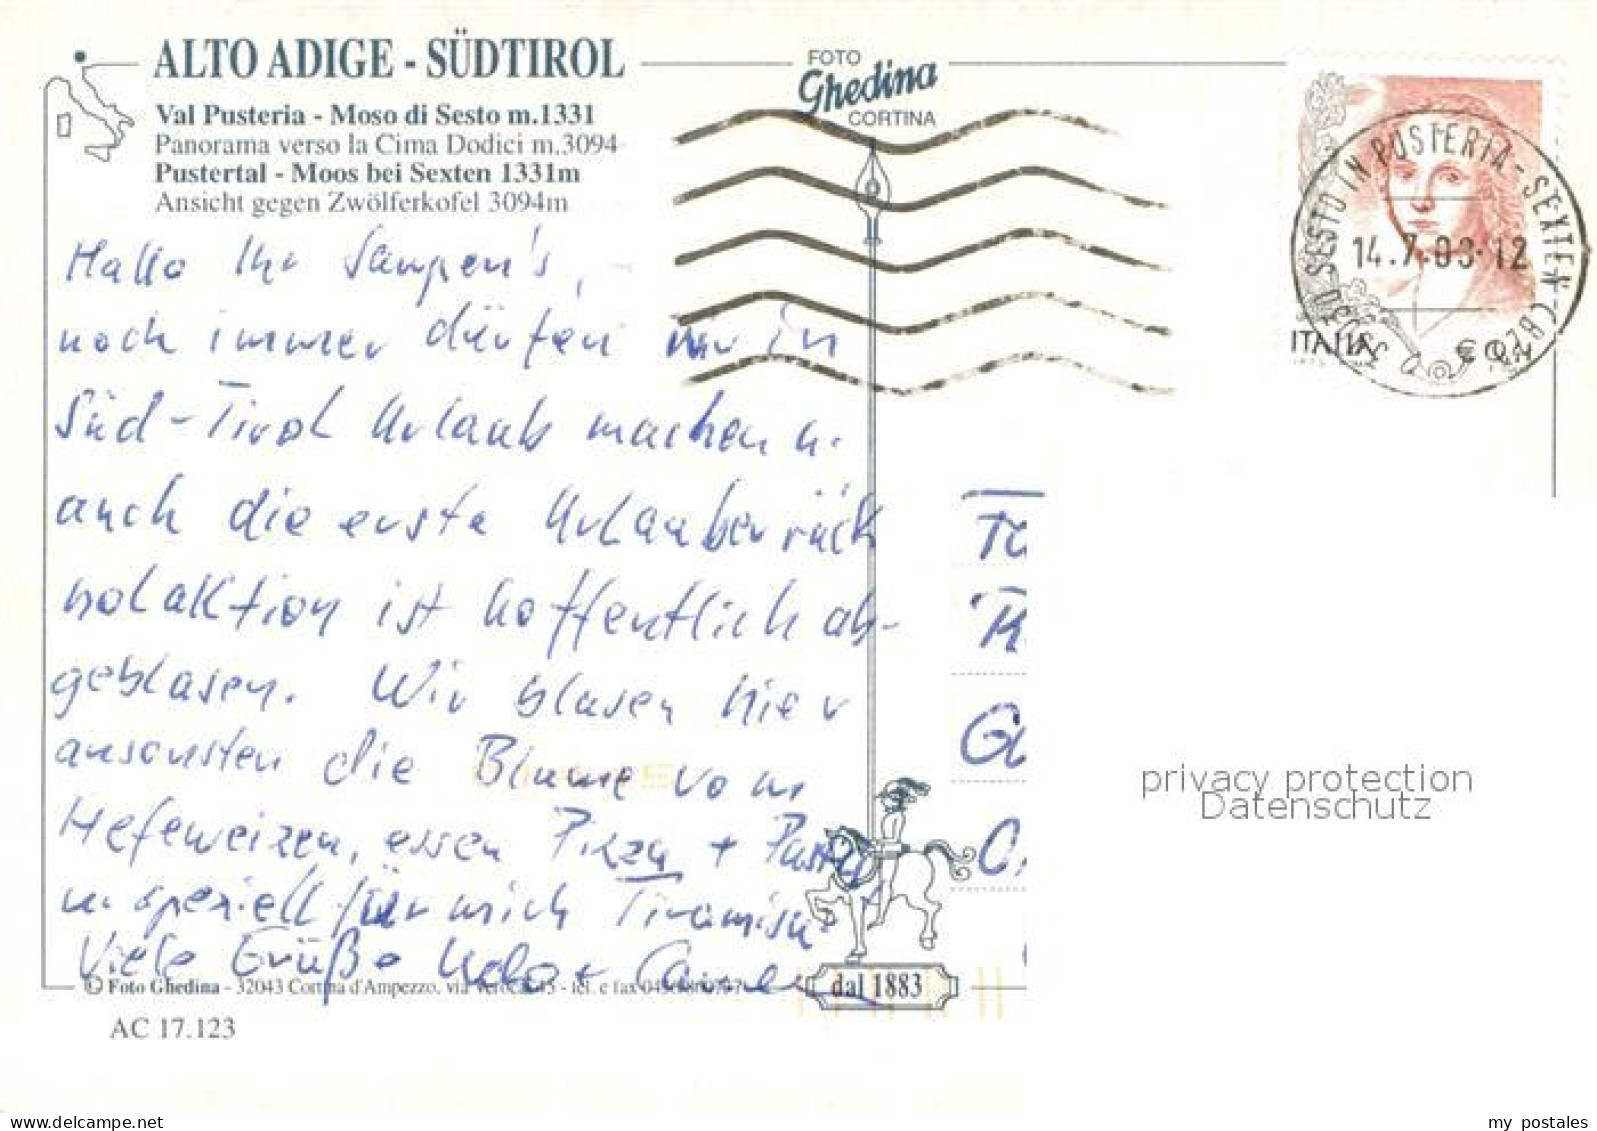 ALTO ADIGE - SÜDTIROL
Val Pusteria - Moso di Sesto m.1331
Panorama verso la Cima Dodici m.3094
Pustertal - Moos bei Sexten 1331m
Ansicht gegen Zwölferkofel 3094m
FOTO
Ghedina
CORTINA
IN PUSTERIA - SEXTEN
14.7.03.12
ITALIA
Hallo Ihr
noch immer dürfen wir in
Süd-Tirol Urlaub machen u.
auch die erste Urlauberrück
holaktion ist hoffentlich ab-
geblasen. Wir blasen hier
ansonsten die Blume vom
Hefeweizen, essen Pizza + Pasta
u. speziell für mich Tiramisu
Viele Grüße
© Foto Ghedina - 32043 Cortina d'Ampezzo, via
dal 1883
AC 17.123
privacy protection
Datenschutz
www.delcampe.net
my_postales